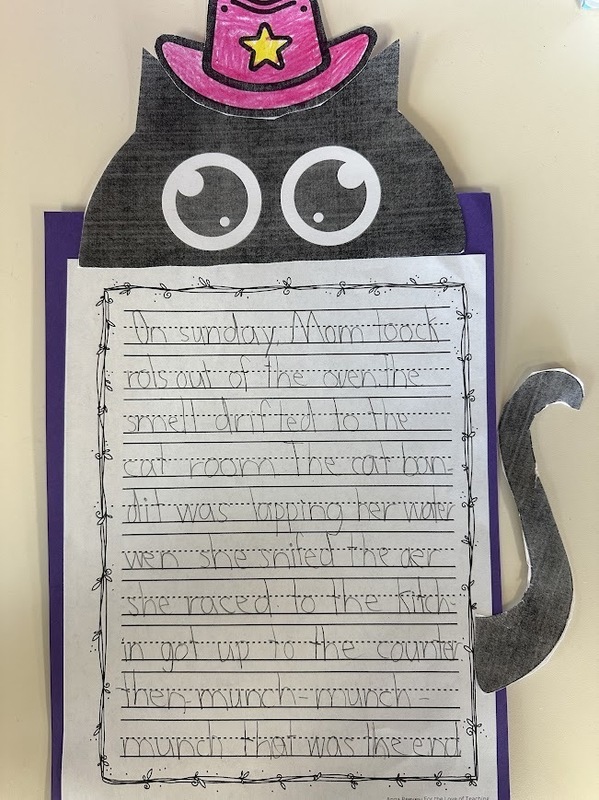 On sunday, Mom toock
rols out of the oven. The
smell drifted to the
cat room The cat ban-
dit was lapping her water
wen she snifed the aer
she raced to the kitch-
in got up to the counter
then-munch-munch-
munch that was the end
For the Love of Teaching